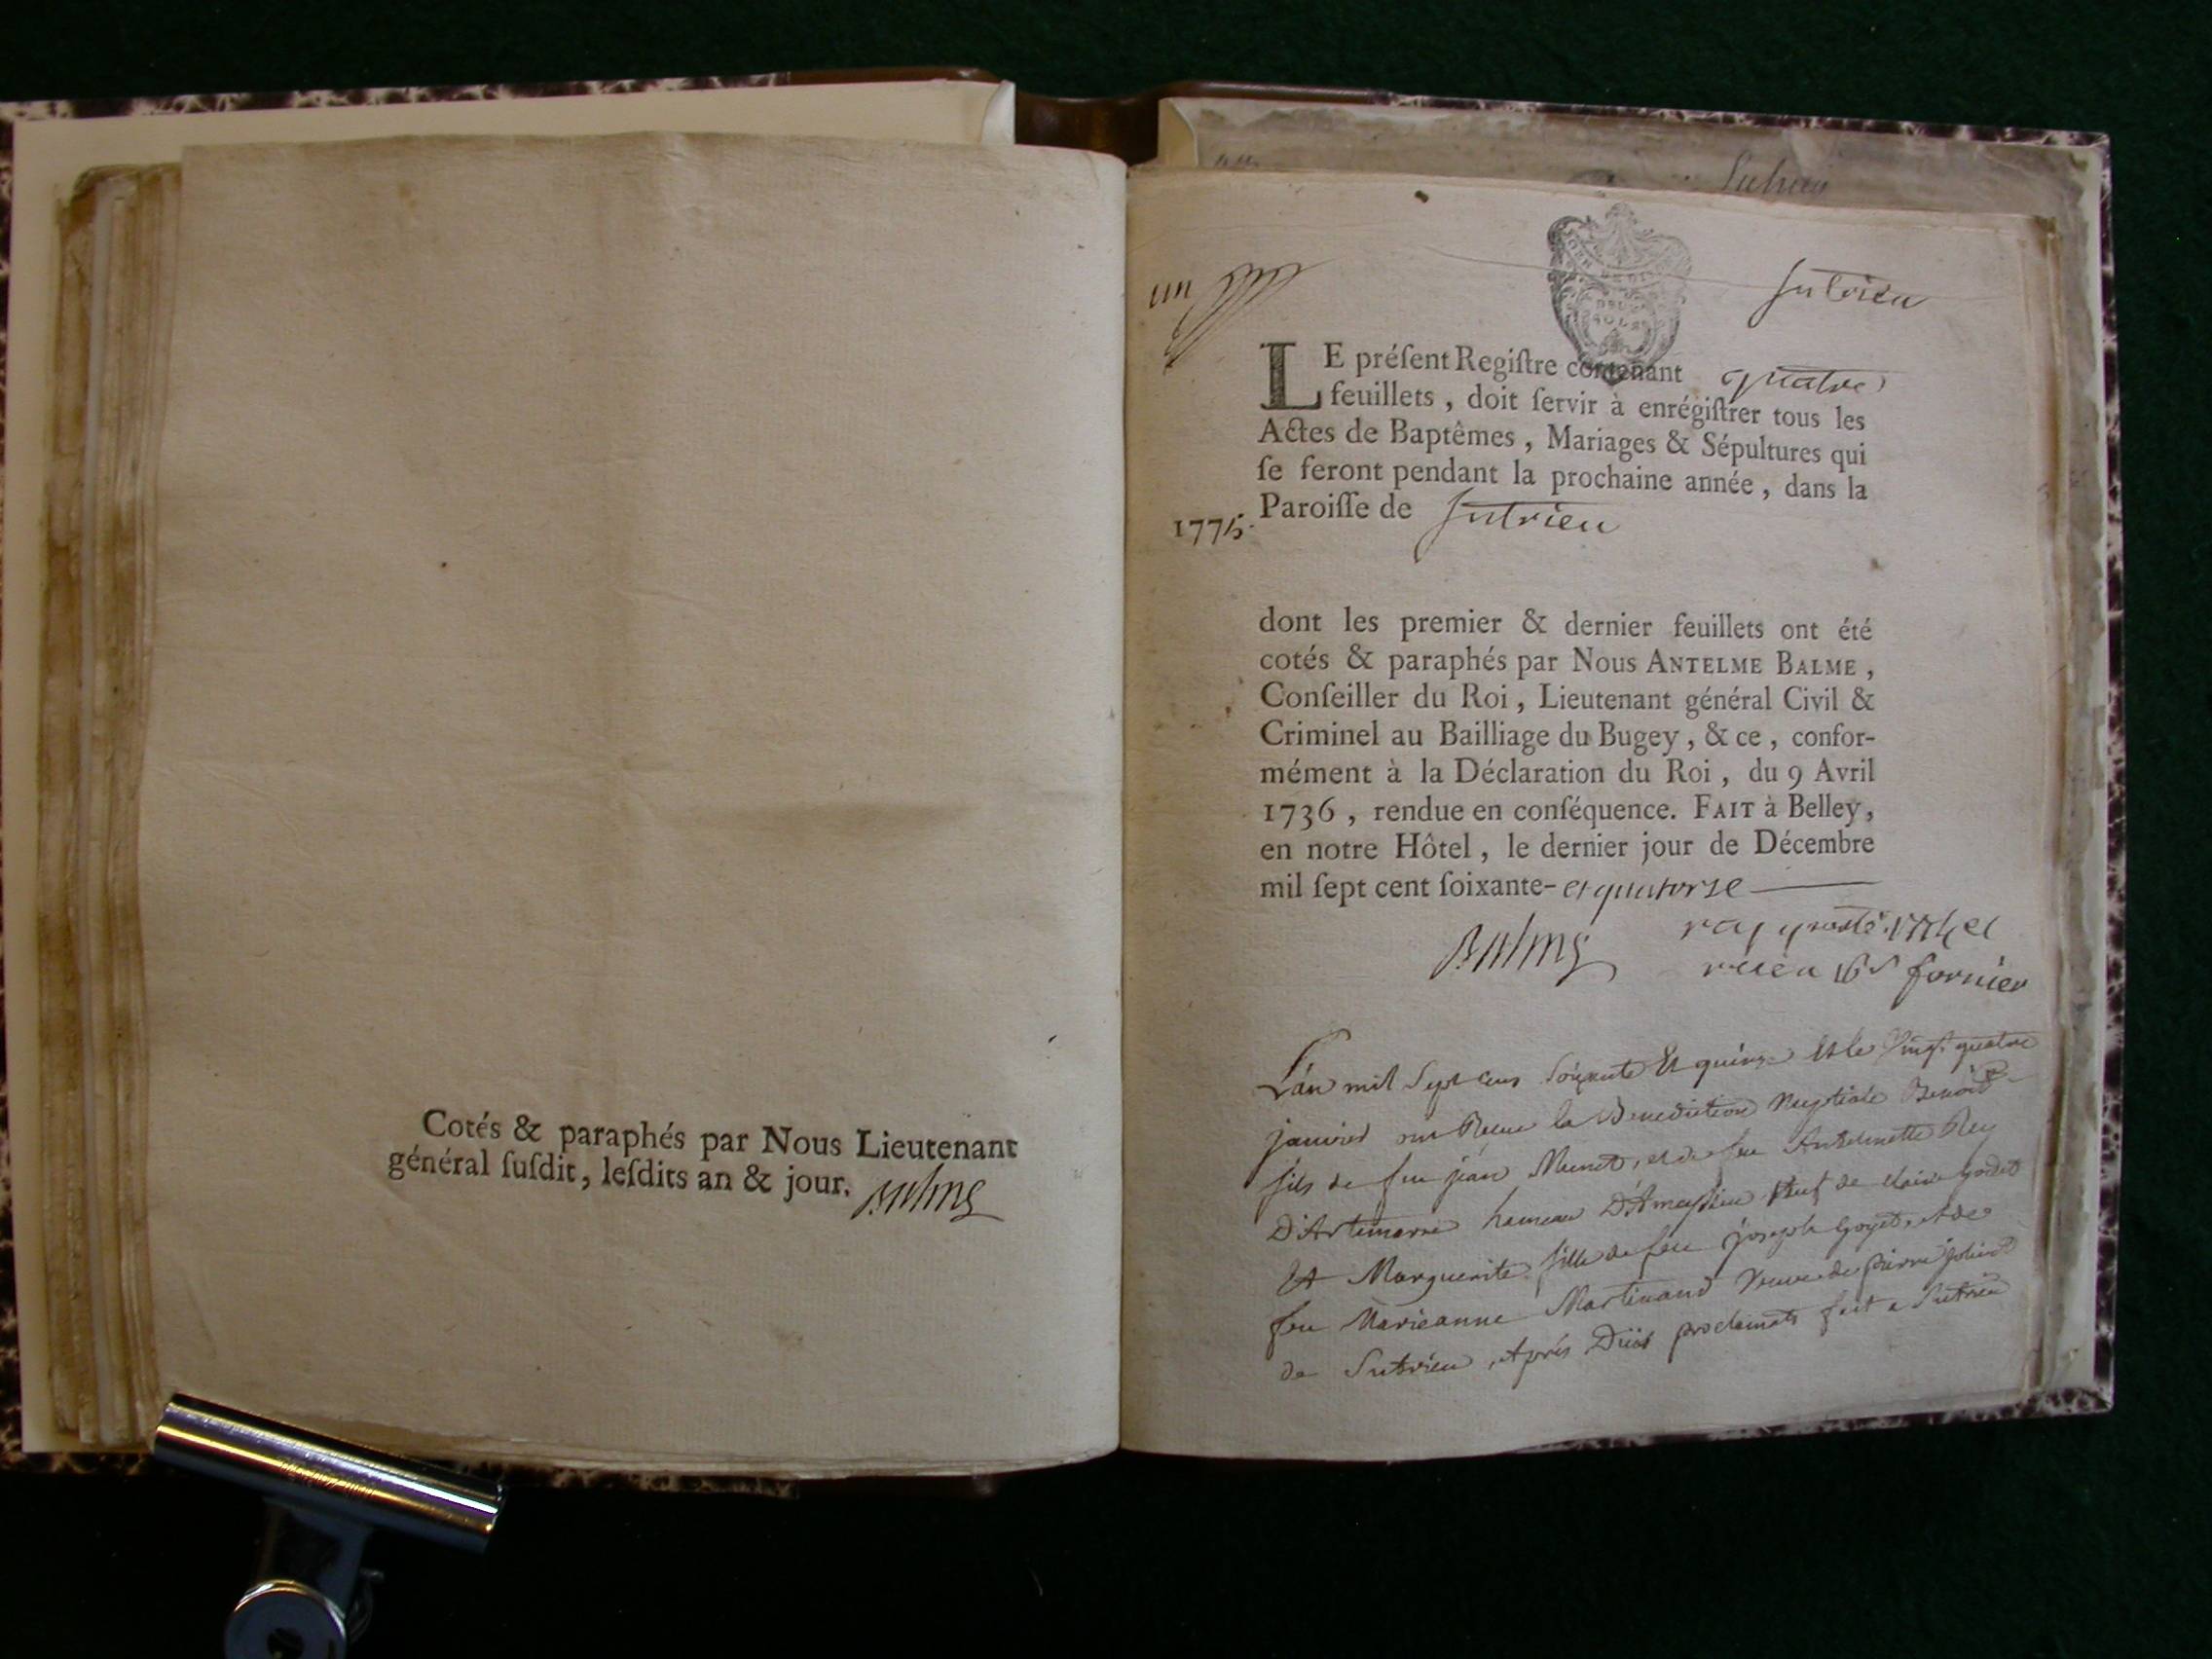 Cotés & paraphés par Nous Lieutenant
général ſuſdit, leſdits an & jour.
Balme
un
Sutrieu
LE préſent Regiſtre contenant quatre
feuillets, doit ſervir à enrégiſtrer tous les
Actes de Baptêmes, Mariages & Sépultures qui
ſe feront pendant la prochaine année, dans la
1775. Paroiſſe de Sutrieu
dont les premier & dernier feuillets ont été
cotés & paraphés par Nous ANTELME BALME,
Conſeiller du Roi, Lieutenant général Civil &
Criminel au Bailliage du Bugey, & ce, confor-
mément à la Déclaration du Roi, du 9 Avril
1736, rendue en conſéquence. FAIT à Belley,
en notre Hôtel, le dernier jour de Décembre
mil ſept cent ſoixante- et quatorze
Balme
raporté 1774 et
fornier
L'an mil Sept cens Soixante Et quinze Et le Vingt quatre
janvier ont Reçue la Benediction Nuptiale Benoid
fils de feu jean Munet, et de feu Antelmette Rey
D'Artemare hameau D'Ameysieu Veuf de Claire Godet
Et Marguerite fille de feu joseph Goyet, et de
feu Marieanne Martinand Veuve de pierre joliet
de Sutrieu, Après proclamats fait a Sutrieu